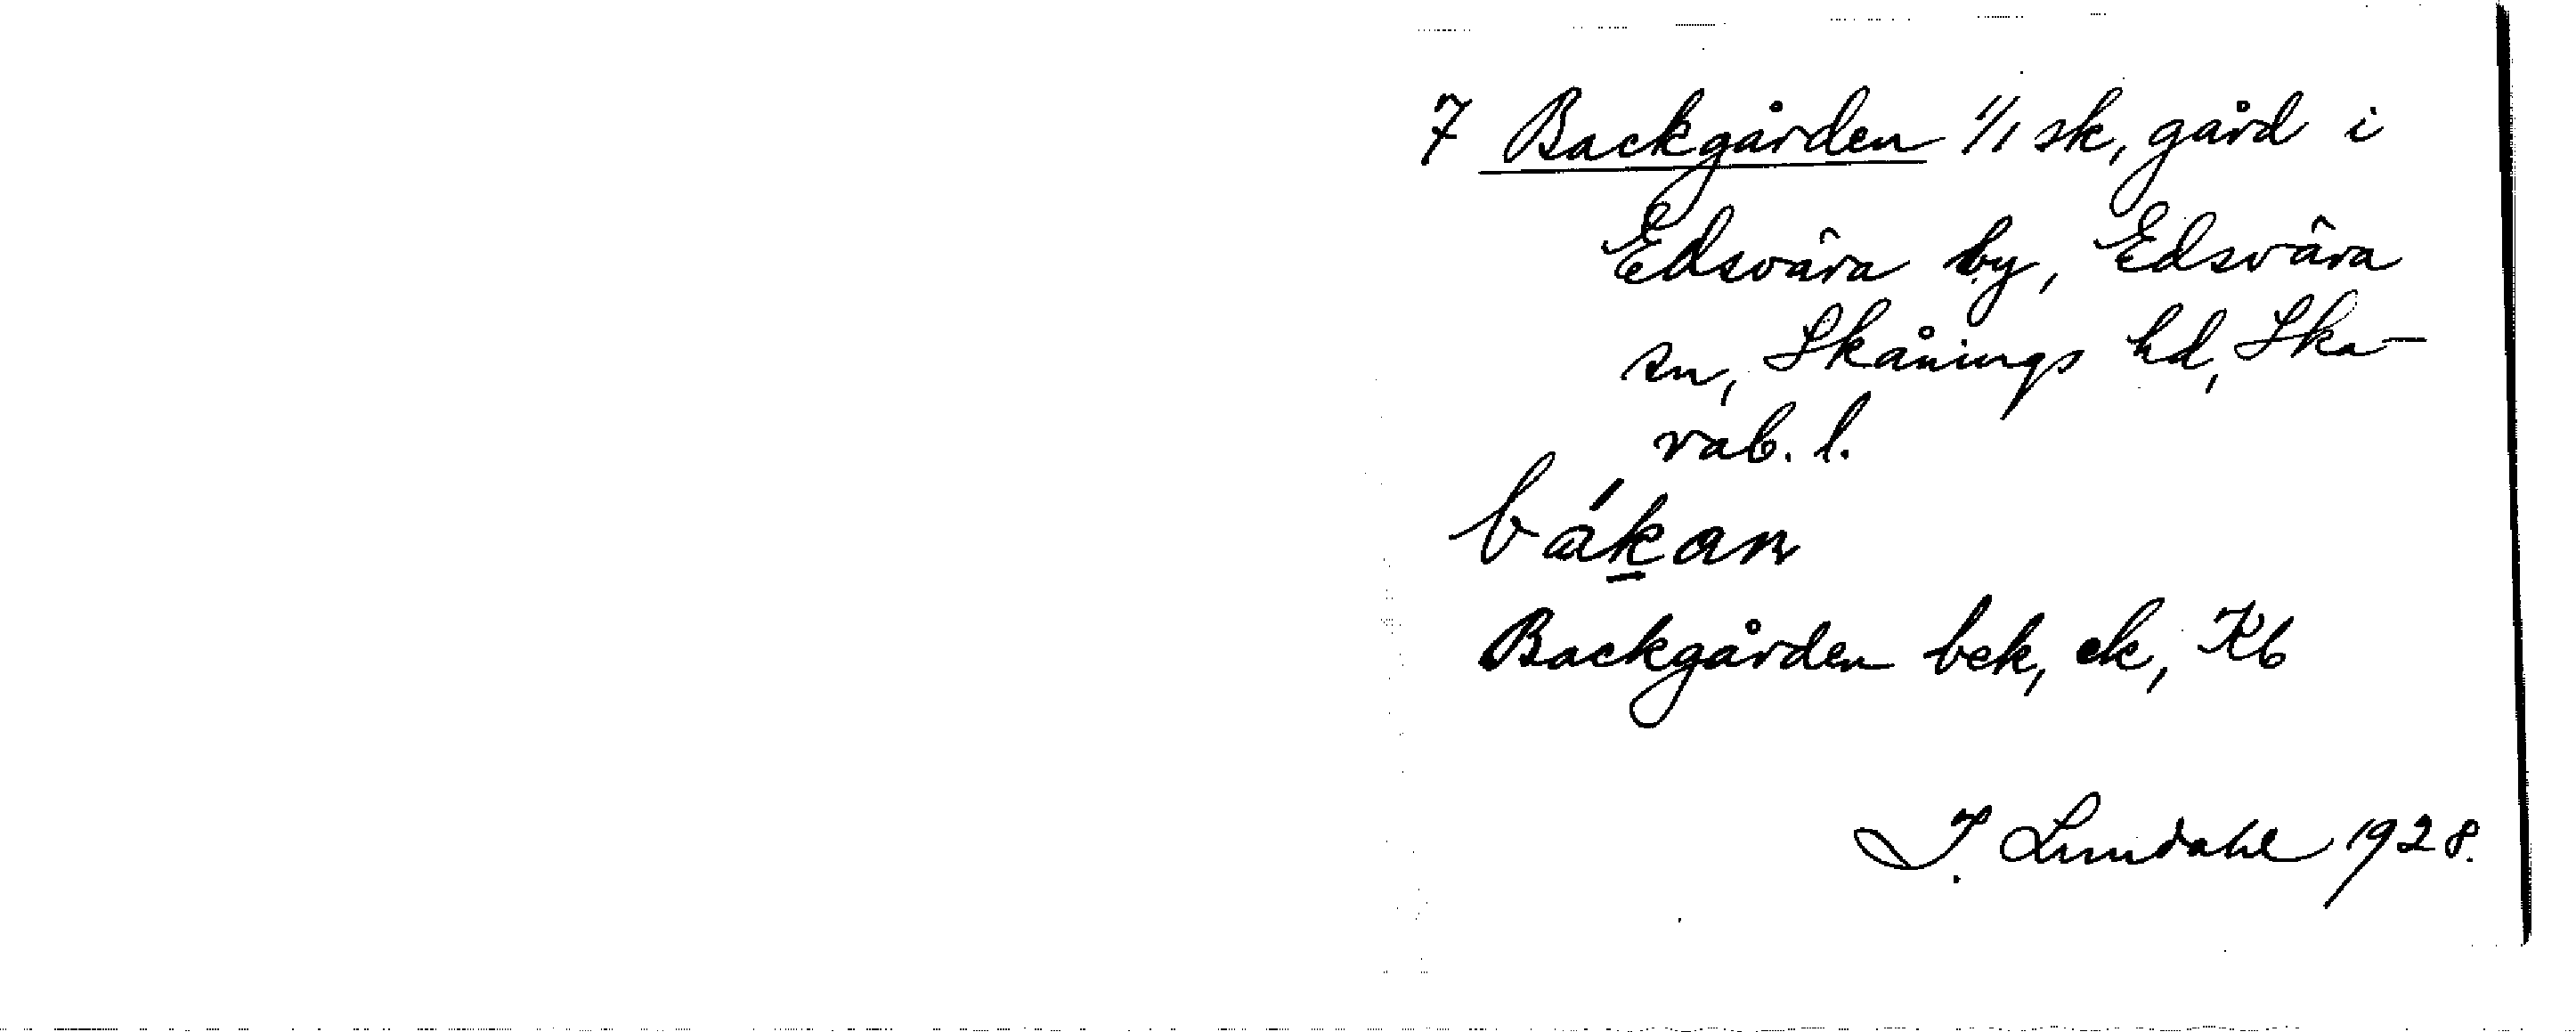 7 Backgården 1/1 sk, gård i
Edsvära by, Edsvära
sn, Skånings hd, Ska-
rab. l.
bákan
Backgården bek, ek, Kb
I. Lundahl 1928.